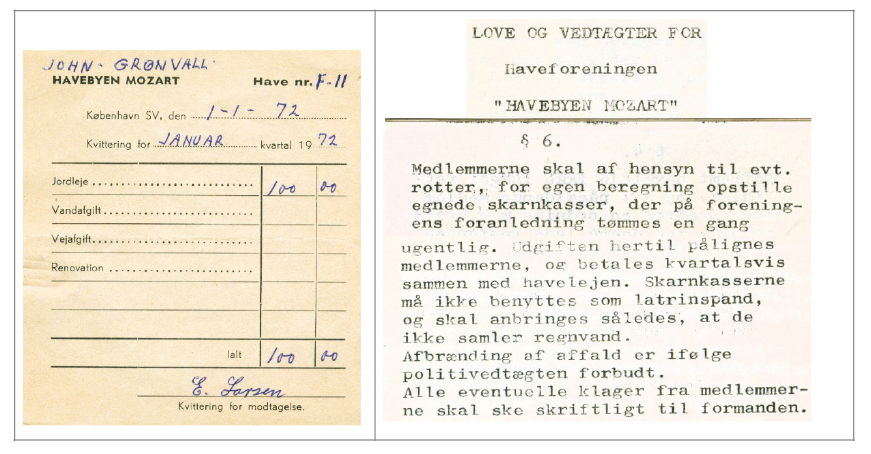 JOHN - GRØNVALL
HAVEBYEN MOZART Have nr. F-11
København SV, den 1-1- 72
Kvittering for JANUAR kvartal 19 72
Jordleje 100 00
Vandafgift
Vejafgift
Renovation
Ialt 100 00
E. Larsen
Kvittering for modtagelse.
LOVE OG VEDTÆGTER FOR
Haveforeningen
"HAVEBYEN MOZART"
§ 6.
Medlemmerne skal af hensyn til evt.
rotter, for egen beregning opstille
egnede skarnkasser, der på forening-
ens foranledning tømmes en gang
ugentlig. Udgiften hertil pålignes
medlemmerne, og betales kvartalsvis
sammen med havelejen. Skarnkasserne
må ikke benyttes som latrinspand,
og skal anbringes således, at de
ikke samler regnvand.
Afbrænding af affald er ifølge
politivedtægten forbudt.
Alle eventuelle klager fra medlemmer-
ne skal ske skriftligt til formanden.